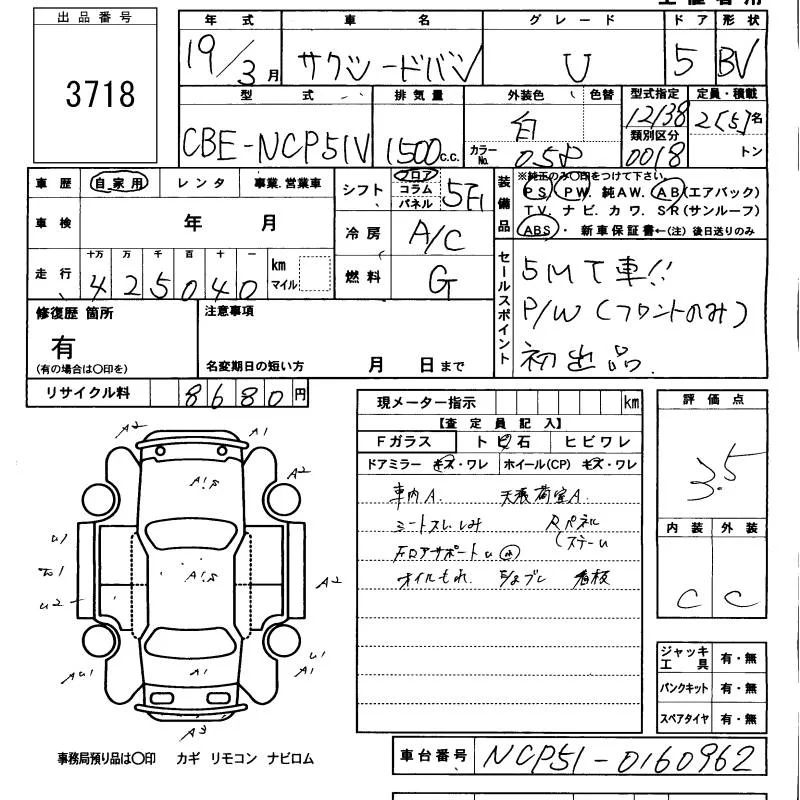 出品番号
3718
年式 車名 グレード ドア 形状
19/3月 サクシードバン U 5 BV
型式 排気量 外装色 色替 型式指定 定員・積載
CBE-NCP51V 1500c.c. 白 12138 2[5]名
類別区分
カラーNo. 058 0018 トン
車歴 自家用 レンタ 事業.営業車
シフト フロア コラム パネル 5F
装備品
※純正のみ○印をつけて下さい。
PS. PW. 純AW. AB(エアバック)
TV. ナビ. カワ. SR(サンルーフ)
ABS・ 新車保証書←(注) 後日送りのみ
車検 年 月
冷房 A/C
走行 十万 万 千 百 十 一 km マイル
425040
燃料 G
セールスポイント
5MT車!!
P/W (フロントのみ)
初出品.
修復歴 箇所
有
(有の場合は○印を)
注意事項
名変期日の短い方 月 日まで
リサイクル料 8680円
現メーター指示 km
【査定員記入】
Fガラス トビ石 ヒビワレ
ドアミラー キズ・ワレ ホイール(CP) キズ・ワレ
車内A. 天張荷室A.
Rパネル
オイルもれ. 看板
評価点
3.5
内装 外装
C C
ジャッキ工具 有・無
パンクキット 有・無
スペアタイヤ 有・無
A2 A1
A1
A2
U1
U2
A2
U1
A1
A1
A3
事務局預り品は○印 カギ リモコン ナビロム
車台番号 NCP51-0160962